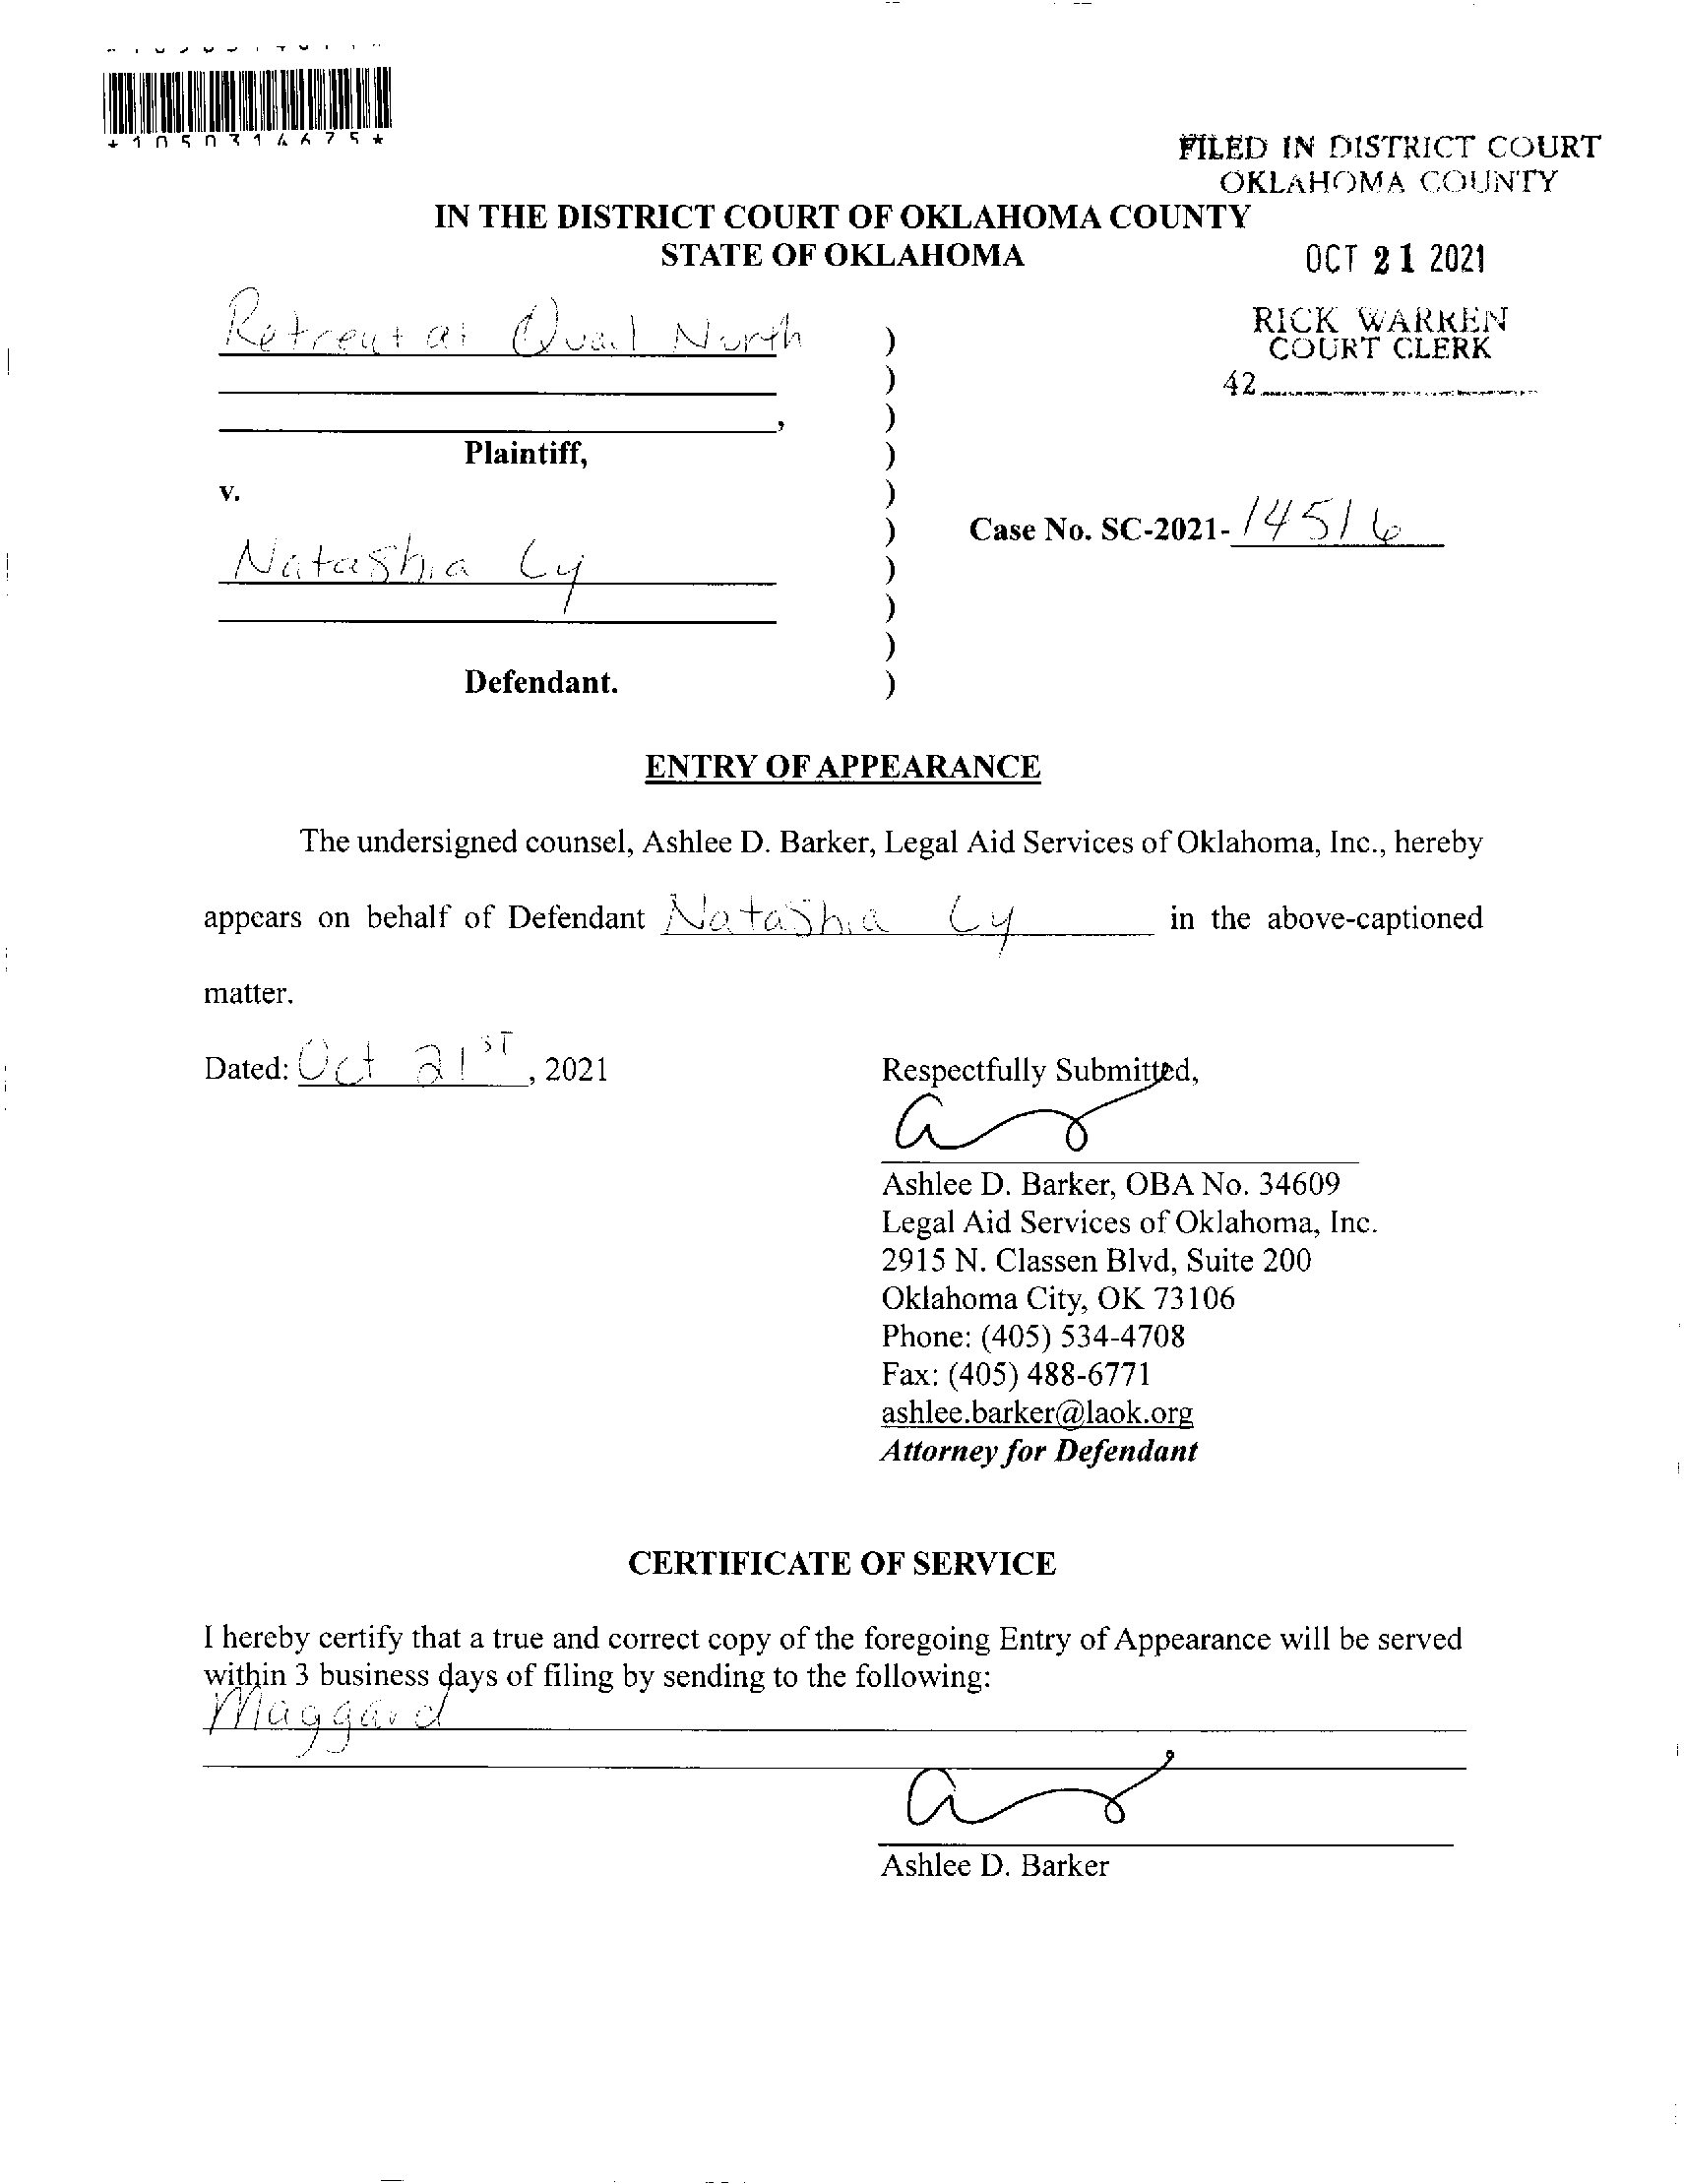 *1050314675*
FILED IN DISTRICT COURT
OKLAHOMA COUNTY
IN THE DISTRICT COURT OF OKLAHOMA COUNTY
STATE OF OKLAHOMA
OCT 21 2021
RICK WARREN
COURT CLERK
42
Retreat at Quail North )
)
, )
Plaintiff, )
v. )
Case No. SC-2021-14516 )
Natashia Ly )
)
)
Defendant. )
ENTRY OF APPEARANCE
The undersigned counsel, Ashlee D. Barker, Legal Aid Services of Oklahoma, Inc., hereby
appears on behalf of Defendant Natashia Ly in the above-captioned
matter.
Dated: Oct 21ST, 2021
Respectfully Submitted,
Ashlee D. Barker, OBA No. 34609
Legal Aid Services of Oklahoma, Inc.
2915 N. Classen Blvd, Suite 200
Oklahoma City, OK 73106
Phone: (405) 534-4708
Fax: (405) 488-6771
ashlee.barker@laok.org
Attorney for Defendant
CERTIFICATE OF SERVICE
I hereby certify that a true and correct copy of the foregoing Entry of Appearance will be served
within 3 business days of filing by sending to the following:
Maggard
Ashlee D. Barker